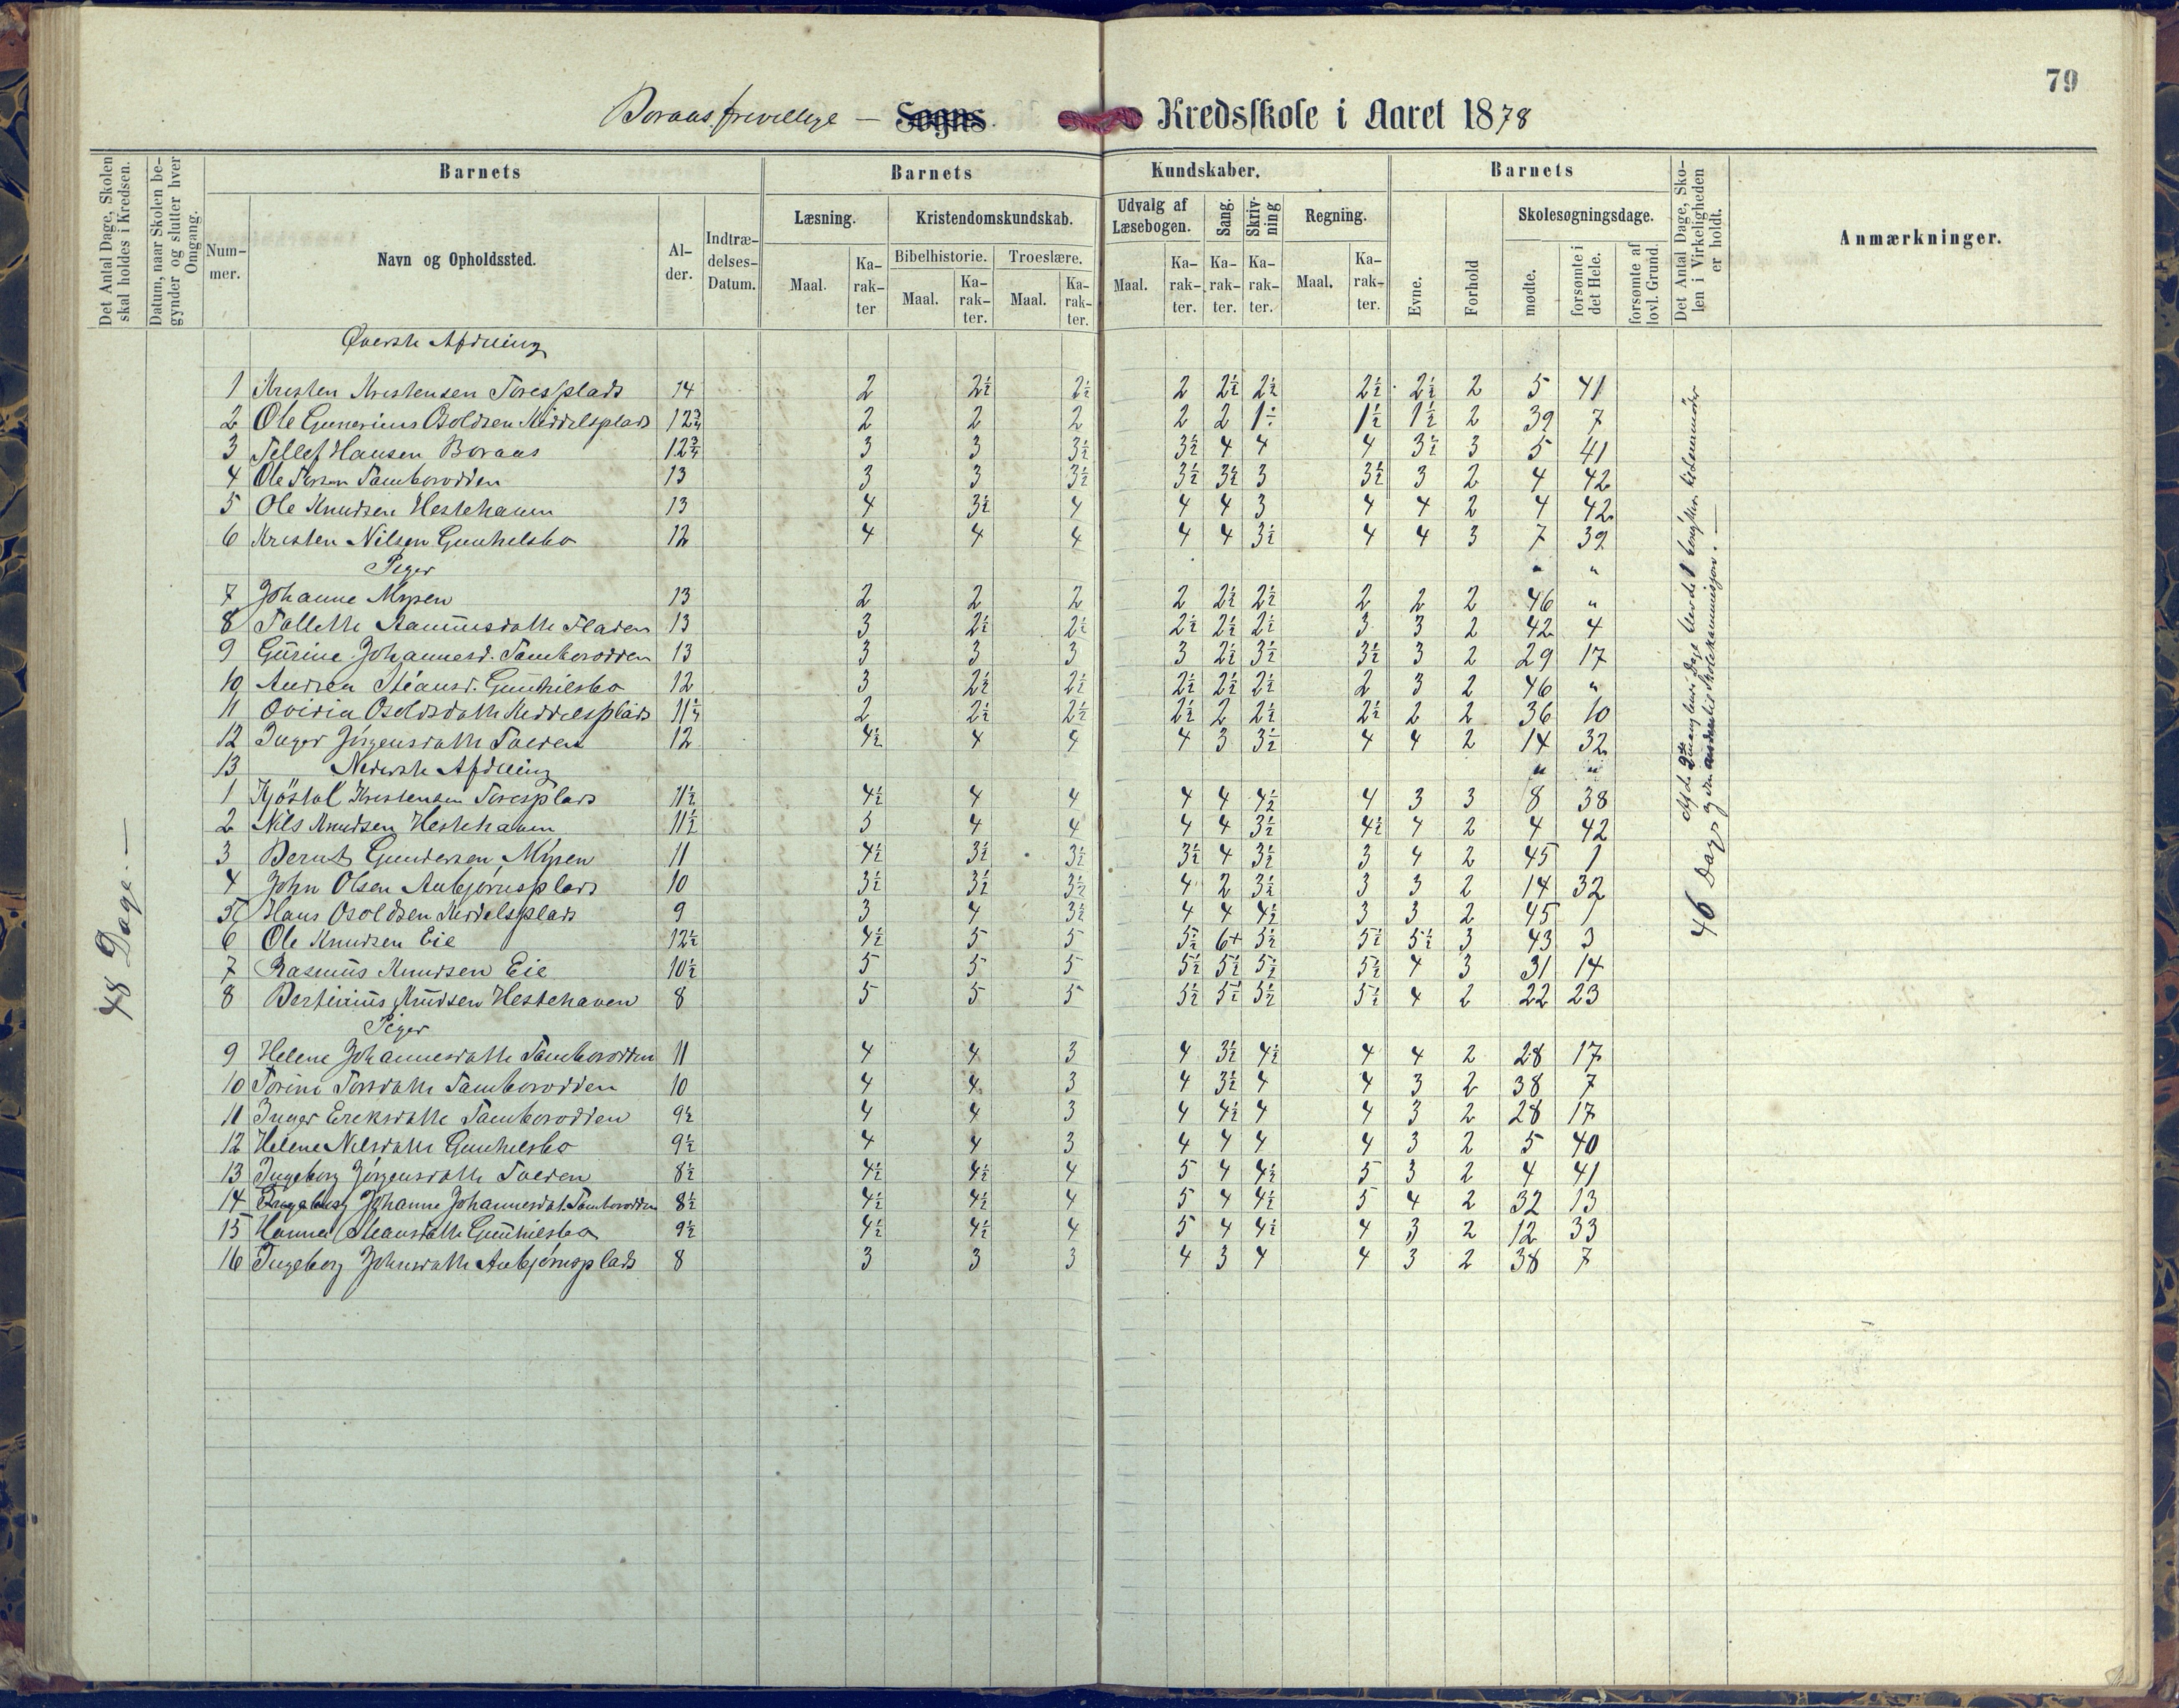 79
Boraas frivillige — Sogns Kredsskole i Aaret 1878
Det Antal Dage, Skolen skal holdes i Kredsen.
Datum, naar Skolen begynder og slutter hver Omgang.
Barnets
Barnets
Kundskaber.
Barnets
Det Antal Dage, Skolen i Virkeligheden er holdt.
Anmærkninger.
Nummer.
Navn og Opholdssted.
Alder.
Indtrædelses-Datum.
Læsning.
Kristendomskundskab.
Udvalg af Læsebogen.
Sang.
Skrivning
Regning.
Evne.
Forhold
Skolesøgningsdage.
Bibelhistorie.
Troeslære.
Maal.
Karakter
Maal.
Karakter.
Maal.
Karakter.
Maal.
Karakter.
Karakter.
Karakter.
Maal.
Karakter.
mødte.
forsømte i det Hele.
forsømte af lovl. Grund.
48 Dage. —
46 Dage
Øverste Afdeling
1 Kristen Kristensen Toresplads 14 2 2½ 2½ 2 2½ 2½ 2½ 2½ 2 5 41
2 Ole Gunerius Osoldsen Kiddelsplads 12¾ 2 2 2 2 2 1½ 1½ 1½ 2 39 7
3 Tellef Hansen Boraas 12¾ 3 3 3½ 3½ 4 4 4 3½ 3 5 41
4 Ole Torsen Tamborodden 13 3 3 3½ 3½ 3½ 3 3½ 3 2 4 42
5 Ole Knudsen Hestehaven 13 4 3½ 4 4 4 3 4 4 2 4 42
6 Kristen Nilsen Gunhelsbo 12 4 4 4 4 4 3½ 4 4 3 7 39
Piger " "
7 Johanne Myren 13 2 2 2 2 2½ 2½ 2 2 2 46 "
8 Tallette Rasmusdatte Fladen 13 3 2½ 2½ 2½ 2½ 2½ 3 3 2 42 4
9 Gurine Johannesd. Tamborodden 13 3 3 3 3 2½ 3½ 3½ 3 2 29 17
10 Andrea Steansd. Gunhilsbo 12 3 2½ 2½ 2½ 2½ 2½ 2 3 2 46 "
11 Ovidia Osoldsdatte Kiddelsplads 11¼ 2 2½ 2½ 2½ 2 2½ 2½ 2 2 36 10
12 Inger Jørgensdatte Toeden 12 4½ 4 4 4 3 3½ 4 4 2 14 32
13 Nederste Afdeling " "
1 Kjöstol Kristensen Toresplads 11½ 4½ 4 4 4 4 4½ 4 3 3 8 38
2 Nils Knudsen Hestehaven 11½ 3 4 4 4 4 3½ 4½ 4 2 4 42
3 Bernt Gundersen Myren 11 4½ 3½ 3½ 3½ 4 3½ 3 4 2 45 1
4 John Olsen Anbjørnsplads 10 3½ 3½ 3½ 4 2 3½ 3 3 2 14 32
5 Hans Osoldsen Kiddelsplads 9 3 4 3½ 4 4 4½ 3 3 2 45 1
6 Ole Knudsen Eie 12½ 4½ 5 5 5½ 6+ 5½ 5½ 5½ 3 43 3
7 Rasmus Knudsen Eie 10½ 5 5 5 5½ 5½ 5½ 5½ 4 3 31 14
8 Bertinius Knudsen Hestehaven 8 5 5 5 5½ 5½ 5½ 5½ 4 2 22 23
Piger
9 Helene Johannesdatte Tamborodden 11 4 4 3 4 3½ 4½ 4 4 2 28 17
10 Torine Torsdatte Tamborodden 10 4 4 3 4 3½ 4 4 3 2 38 7
11 Inger Ereksdatte Tamborodden 9½ 4 4 3 4 4½ 4 4 3 2 28 17
12 Helene Nelsdatte Gunhelsbo 9½ 4 4 3 4 4 4 4 3 2 5 40
13 Ingeborg Jørgensdatte Toeden 8½ 4½ 4½ 4 5 4 4½ 5 3 2 4 41
14 Johanne Johannesdat. Tamborodden 8½ 4½ 4½ 4 5 4 4½ 5 4 2 32 13
15 Hanna Steansdatte Gunhilsbo 9½ 4½ 4½ 4 5 4 4½ 4 3 2 12 33
16 Ingeborg Johnsdatte Anbjørnsplads 8 3 3 3 4 3 4 4 3 2 38 7